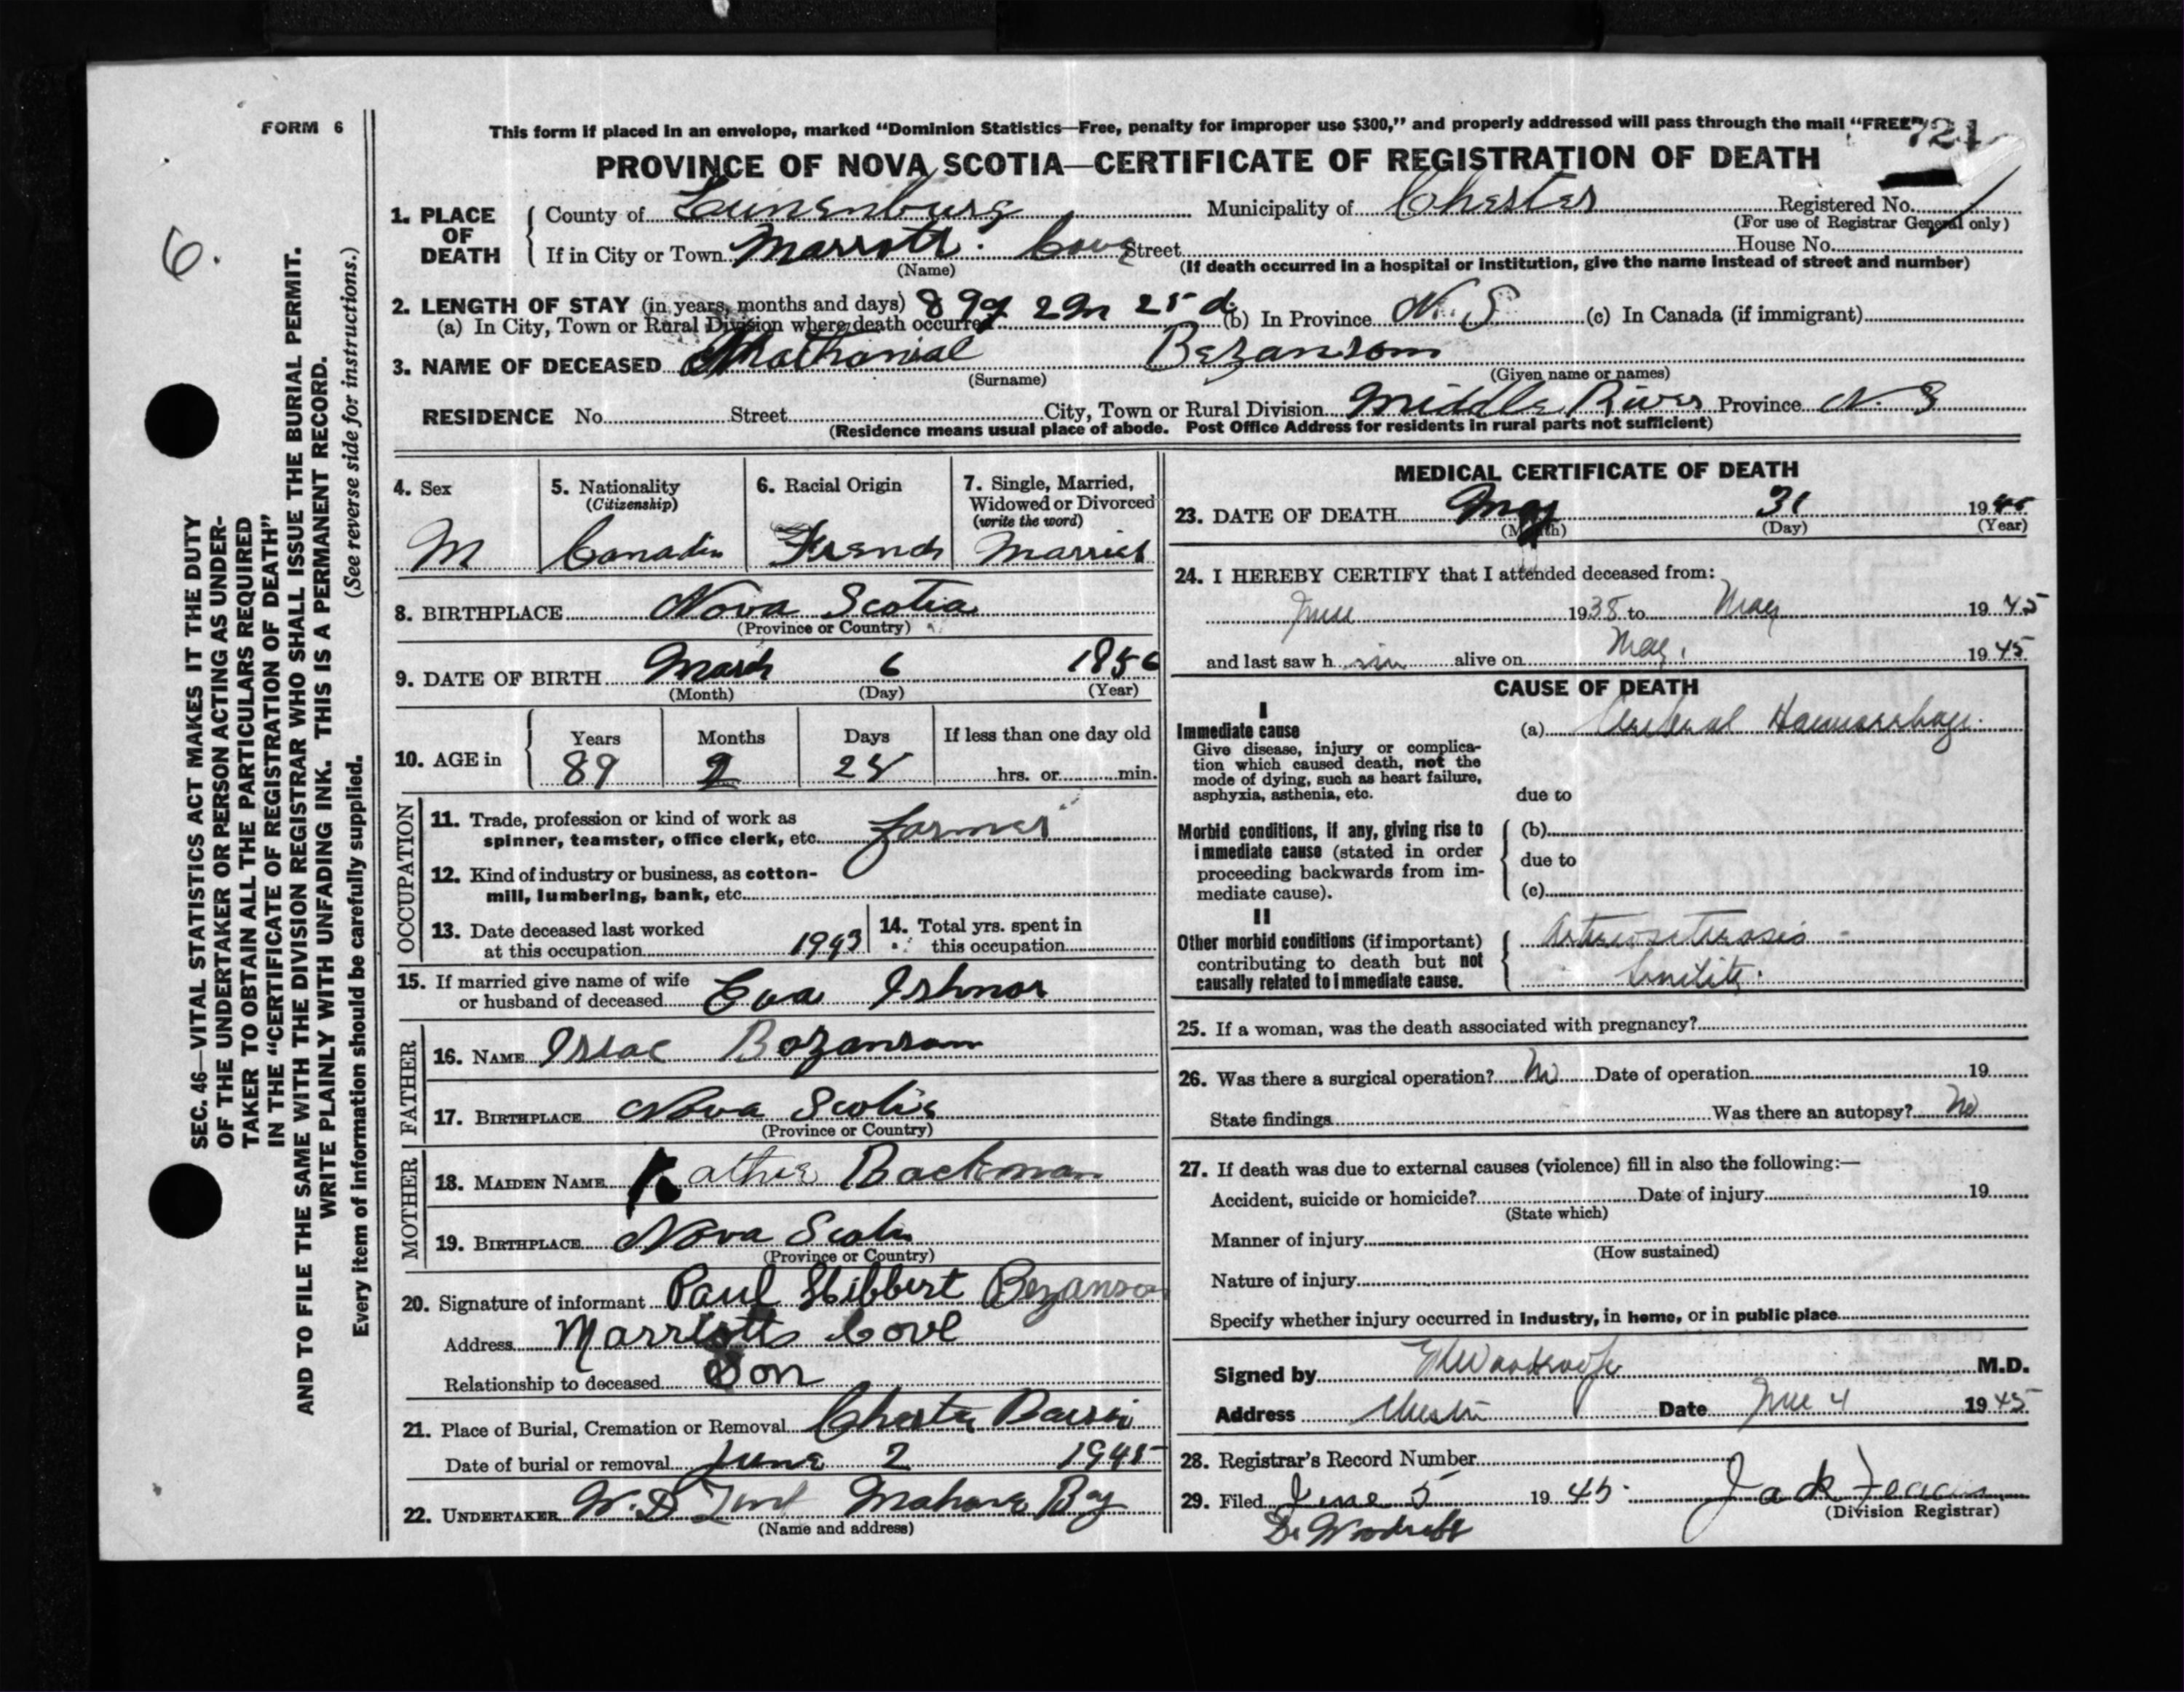 FORM 6
This form if placed in an envelope, marked "Dominion Statistics—Free, penalty for improper use $300," and properly addressed will pass through the mail "FREE"
721
PROVINCE OF NOVA SCOTIA—CERTIFICATE OF REGISTRATION OF DEATH
6.
SEC. 46—VITAL STATISTICS ACT MAKES IT THE DUTY
OF THE UNDERTAKER OR PERSON ACTING AS UNDER-
TAKER TO OBTAIN ALL THE PARTICULARS REQUIRED
IN THE "CERTIFICATE OF REGISTRATION OF DEATH"
AND TO FILE THE SAME WITH THE DIVISION REGISTRAR WHO SHALL ISSUE THE BURIAL PERMIT.
WRITE PLAINLY WITH UNFADING INK. THIS IS A PERMANENT RECORD.
Every item of information should be carefully supplied. (See reverse side for instructions.)
1. PLACE OF DEATH
County of Lunenburg Municipality of Chester Registered No.
(For use of Registrar General only)
If in City or Town Marrott Cove Street House No.
(Name) (If death occurred in a hospital or institution, give the name instead of street and number)
2. LENGTH OF STAY (in years, months and days) 89y 2m 25 d
(a) In City, Town or Rural Division where death occurred (b) In Province N. S (c) In Canada (if immigrant)
3. NAME OF DECEASED Nathanial Bezanson
(Surname) (Given name or names)
RESIDENCE No. Street City, Town or Rural Division Middle River Province N. S
(Residence means usual place of abode. Post Office Address for residents in rural parts not sufficient)
4. Sex
M
5. Nationality
(Citizenship)
Canadin
6. Racial Origin
French
7. Single, Married,
Widowed or Divorced
(write the word)
Married
8. BIRTHPLACE Nova Scotia
(Province or Country)
9. DATE OF BIRTH March 6 1856
(Month) (Day) (Year)
10. AGE in
Years Months Days If less than one day old
89 2 25 hrs. or min.
OCCUPATION
11. Trade, profession or kind of work as
spinner, teamster, office clerk, etc. farmer
12. Kind of industry or business, as cotton-
mill, lumbering, bank, etc.
13. Date deceased last worked
at this occupation 1943
14. Total yrs. spent in
this occupation
15. If married give name of wife
or husband of deceased Eva Ishnor
FATHER
16. NAME Isiac Bozanson
17. BIRTHPLACE Nova Scotia
(Province or Country)
MOTHER
18. MAIDEN NAME Kathie Backman
19. BIRTHPLACE Nova Scotia
(Province or Country)
20. Signature of informant Paul Hibbert Bezanson
Address Marriotts Cove
Relationship to deceased Son
21. Place of Burial, Cremation or Removal Chester Basin
Date of burial or removal June 2 1945
22. UNDERTAKER W. D Mahone Bay
(Name and address)
MEDICAL CERTIFICATE OF DEATH
23. DATE OF DEATH May 31 1945
(Month) (Day) (Year)
24. I HEREBY CERTIFY that I attended deceased from:
June 1938 to May 1945
and last saw him alive on May, 1945
CAUSE OF DEATH
I
Immediate cause
Give disease, injury or complica-
tion which caused death, not the
mode of dying, such as heart failure,
asphyxia, asthenia, etc.
(a) Cerebral Haemorrhage.
due to
Morbid conditions, if any, giving rise to
immediate cause (stated in order
proceeding backwards from im-
mediate cause).
(b)
due to
(c)
II
Other morbid conditions (if important)
contributing to death but not
causally related to immediate cause.
Arteriosclerosis
Senility.
25. If a woman, was the death associated with pregnancy?
26. Was there a surgical operation? No Date of operation 19
State findings Was there an autopsy? No
27. If death was due to external causes (violence) fill in also the following:—
Accident, suicide or homicide? Date of injury 19
(State which)
Manner of injury
(How sustained)
Nature of injury
Specify whether injury occurred in industry, in home, or in public place
Signed by M.D.
Address Chester Date June 4 1945
28. Registrar's Record Number
29. Filed June 5 1945. Jack
(Division Registrar)
Dr Woodroff